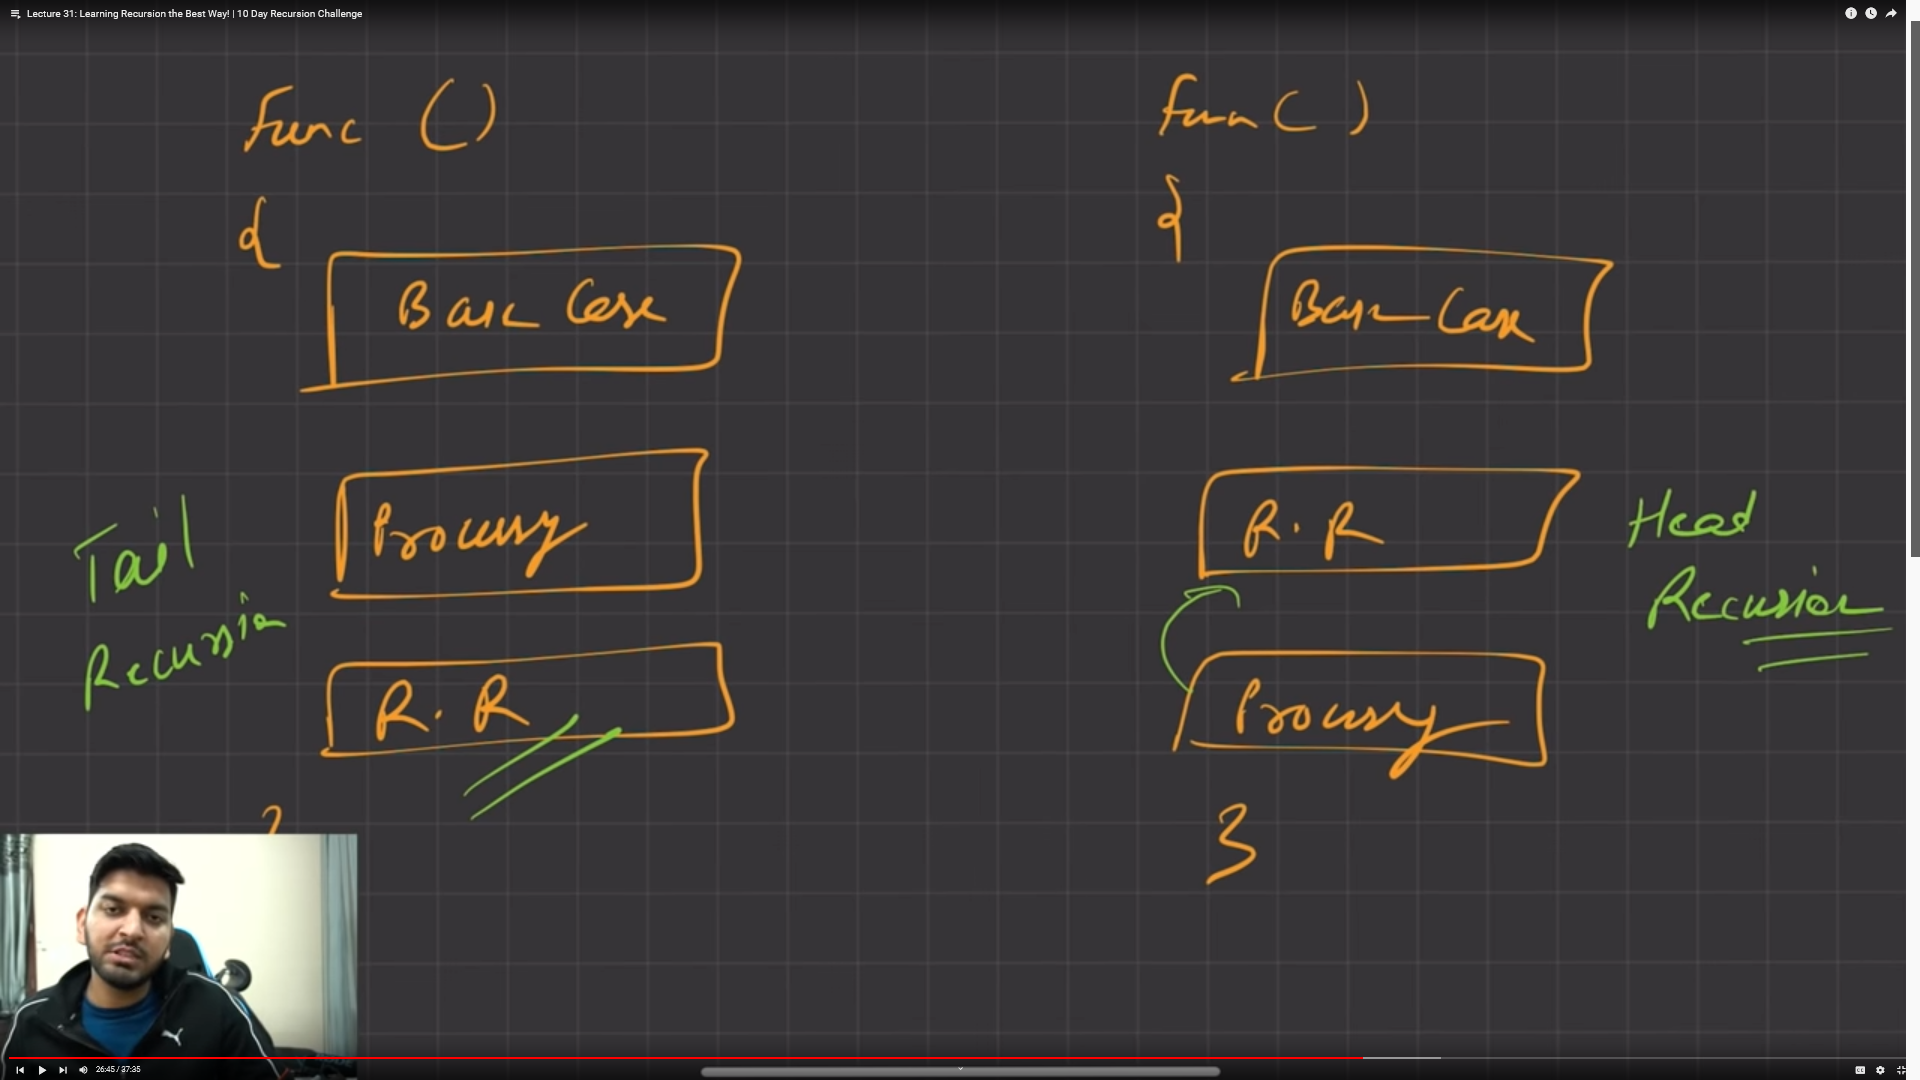 Lecture 31: Learning Recursion the Best Way! | 10 Day Recursion Challenge
Func ()
{
Base Case
Processing
R. R
Tail
Recursion
Func ( )
{
Base Case
R. R
Processing
}
Head
Recursion
26:45 / 37:35